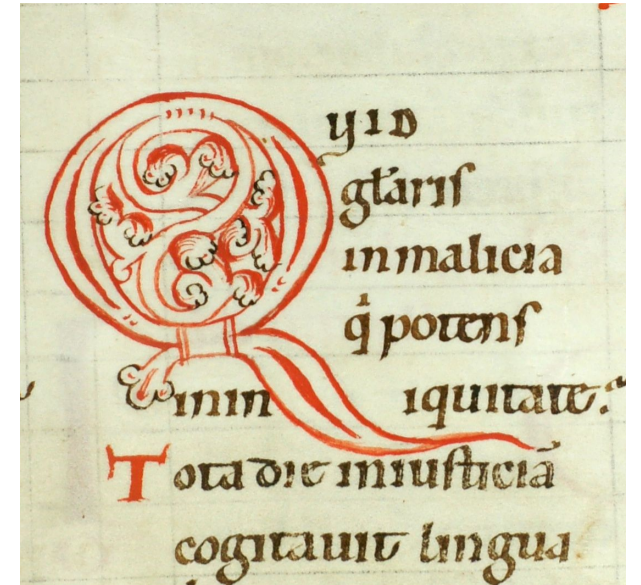 QyID
gl̄aris
in malicia
q̇ potens
in iniquitate.
Tota die iniusticiā
cogitauit lingua